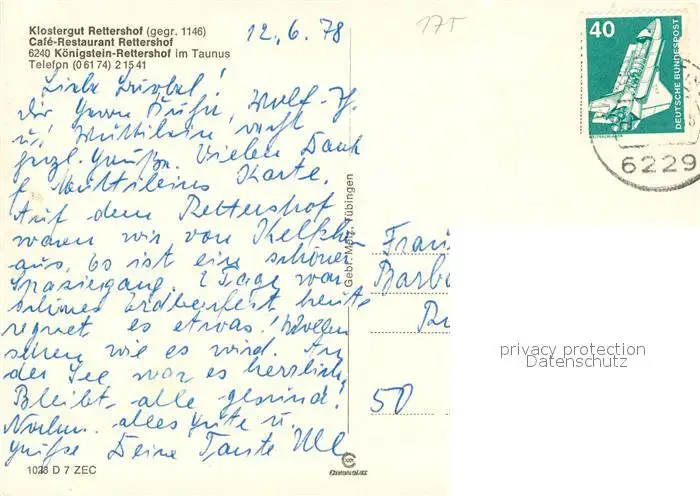 Klostergut Rettershof (gegr. 1146)
Café-Restaurant Rettershof
6240 Königstein-Rettershof im Taunus
Telefon (0 61 74) 2 15 41
12.6.78
175
40
DEUTSCHE BUNDESPOST
6229
Liebe
Dir, Wolf-
u.
herzl. Grüße. Vielen Dank
f. Muttileins Karte.
Auf dem Rettershof
waren wir von Kelkh
aus. Es ist ein schöner
Spaziergang. 2 Tage war
schönes Erdbeerfest heute
regnet es etwas! Wollen
sehen wie es wird. An
der See war es herrlich.
Bleibt alle gesund!
Nochm. alles Gute u.
Grüße Deine Tante
Gebr. Metz, Tübingen
Frau
Barb
50
privacy protection
Datenschutz
1023 D 7 ZEC